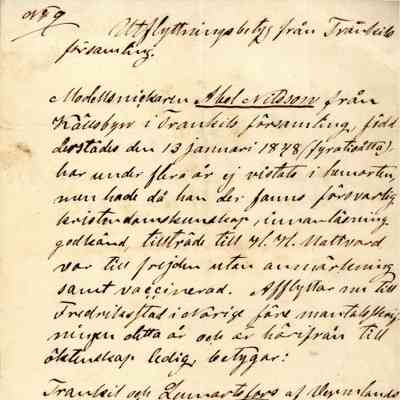 N:9
Utflyttningsbetyg från Trankils
församling.
Modellsnickaren Abel Nilsson från
Källsbyn i Trankils församling, född
derstädes den 13 januari 1848 (fyratioåtta),
har under flera år ej vistats i hemorten,
men hade då han der fanns försvarlig
kristendomskunskap, innanläsning
godkänd, tillträde till H. H. Nattvard
var till frejden utan anmärkning
samt vaccinerad. Afflyttar nu till
Fredriksstad i Norige före mantalsskrif-
ningen detta år och är härifrån till
äktenskap ledig, betygar:
Trankil och Lennartsfors af Wermlands